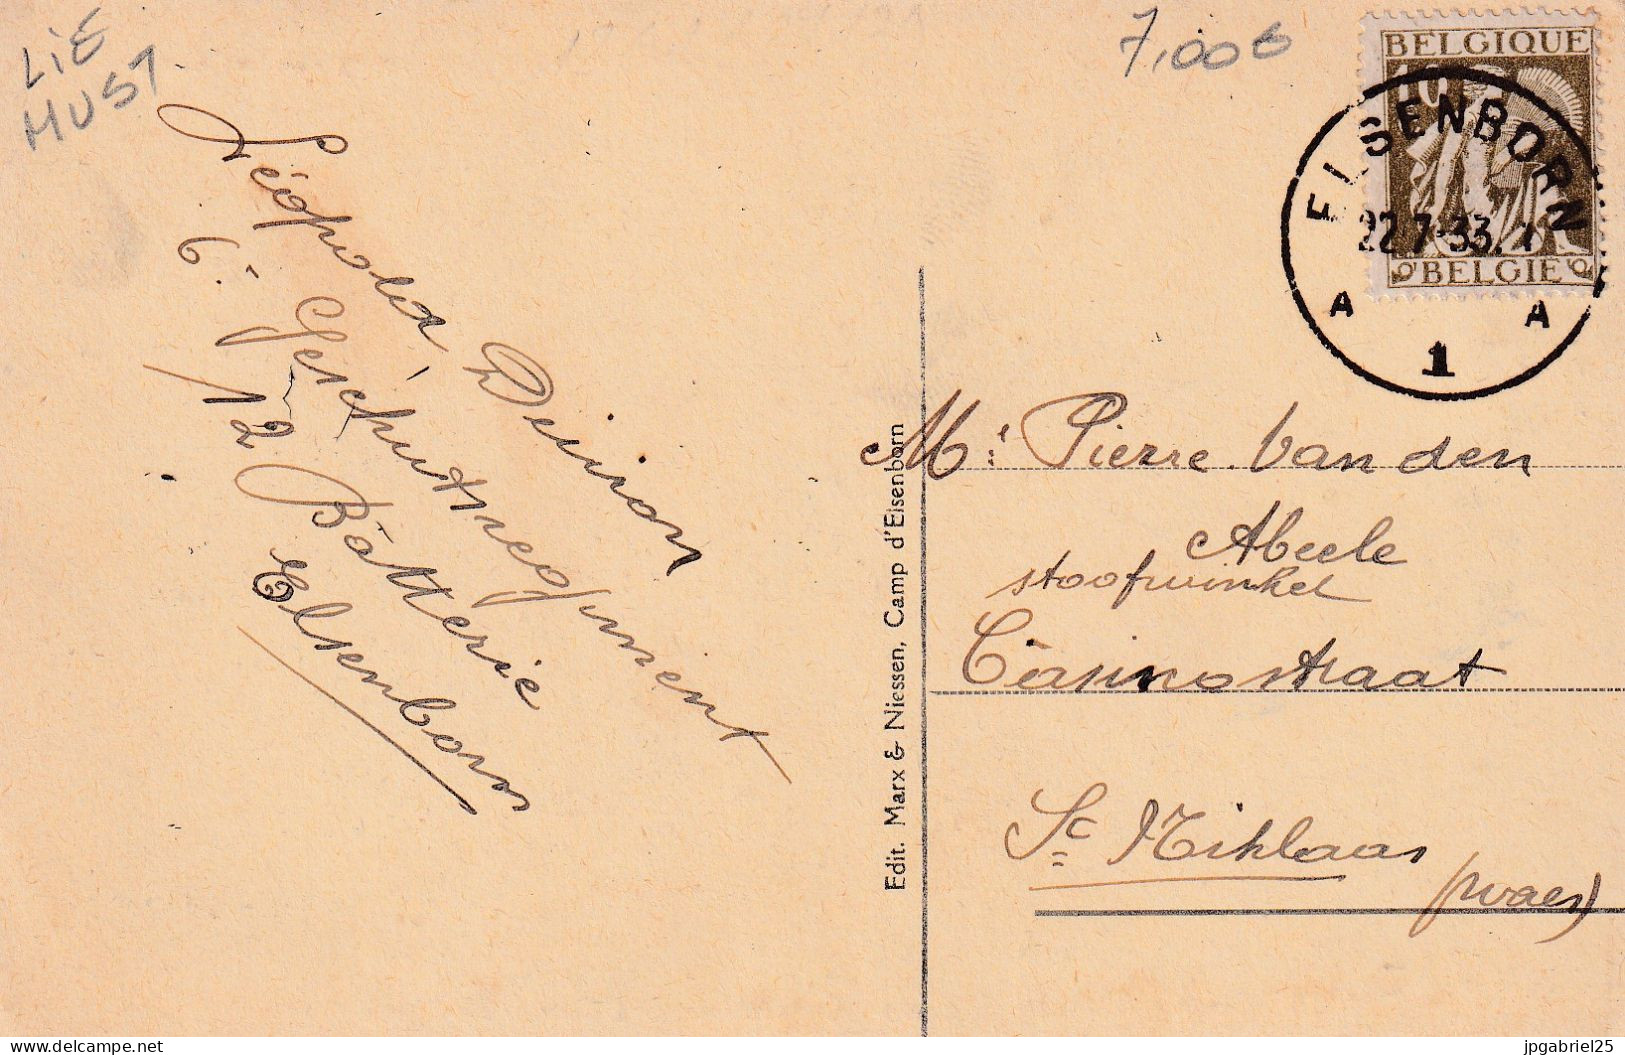 LIE
MUST
7,00€
BELGIQUE
10
BELGIË
ELSENBORN
22.7.33
A A
1
Léopold Denison
6e Geschutregiment
12 Batterie
Elsenborn
Edit. Marx & Niessen, Camp d'Elsenborn
Mr Pierre Van den
Abeele
stoofwinkel
Casinostraat
St Niklaas
(Waes)
delcampe.net
jpgabriel25